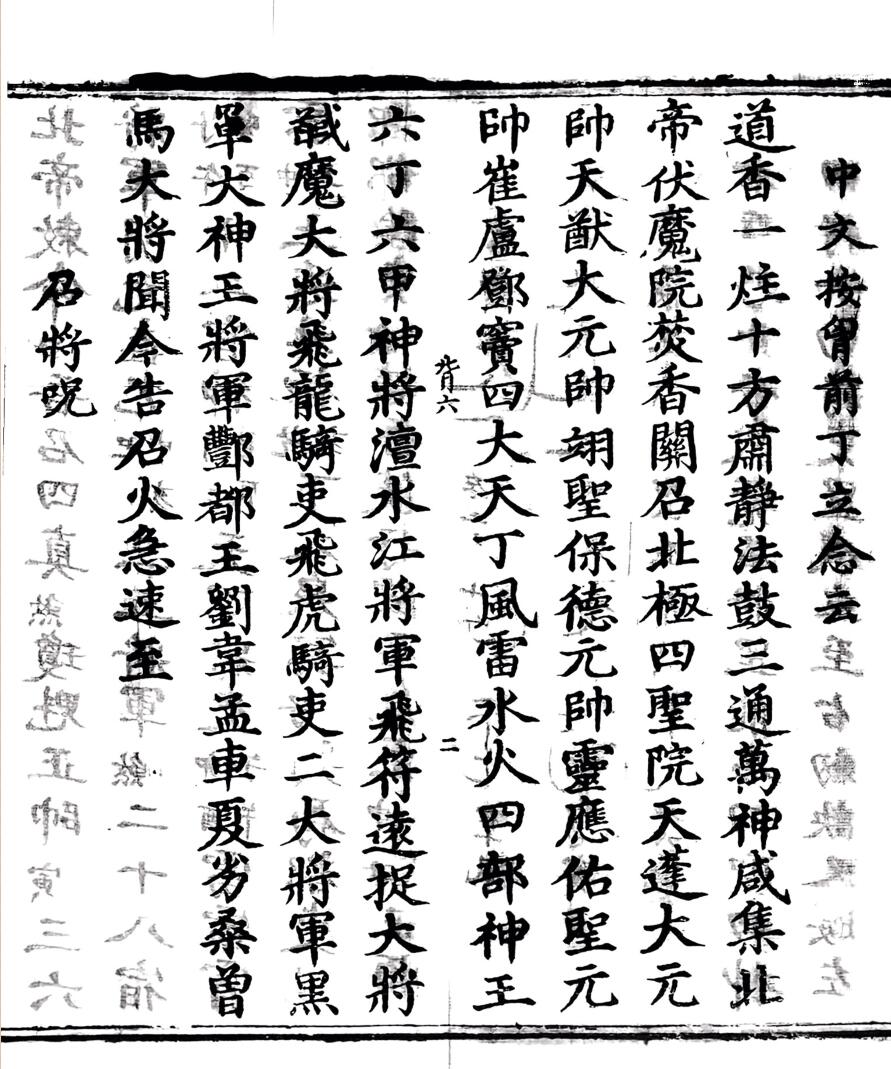 中文按胷前丁立念云
道香一炷十方肅靜法鼓三通萬神咸集北
帝伏魔院焚香關召北極四聖院天蓬大元
帥天猷大元帥翊聖保德元帥靈應佑聖元
帥崔盧鄧竇四大天丁風雷水火四部神王
背六
二
六丁六甲神將澶水江將軍飛符遠捉大將
馘魔大將飛龍騎吏飛虎騎吏二大將軍黑
單大神王將軍酆都王劉韋孟車夏劣桑曾
馬大將聞今告召火急速至
召將呪